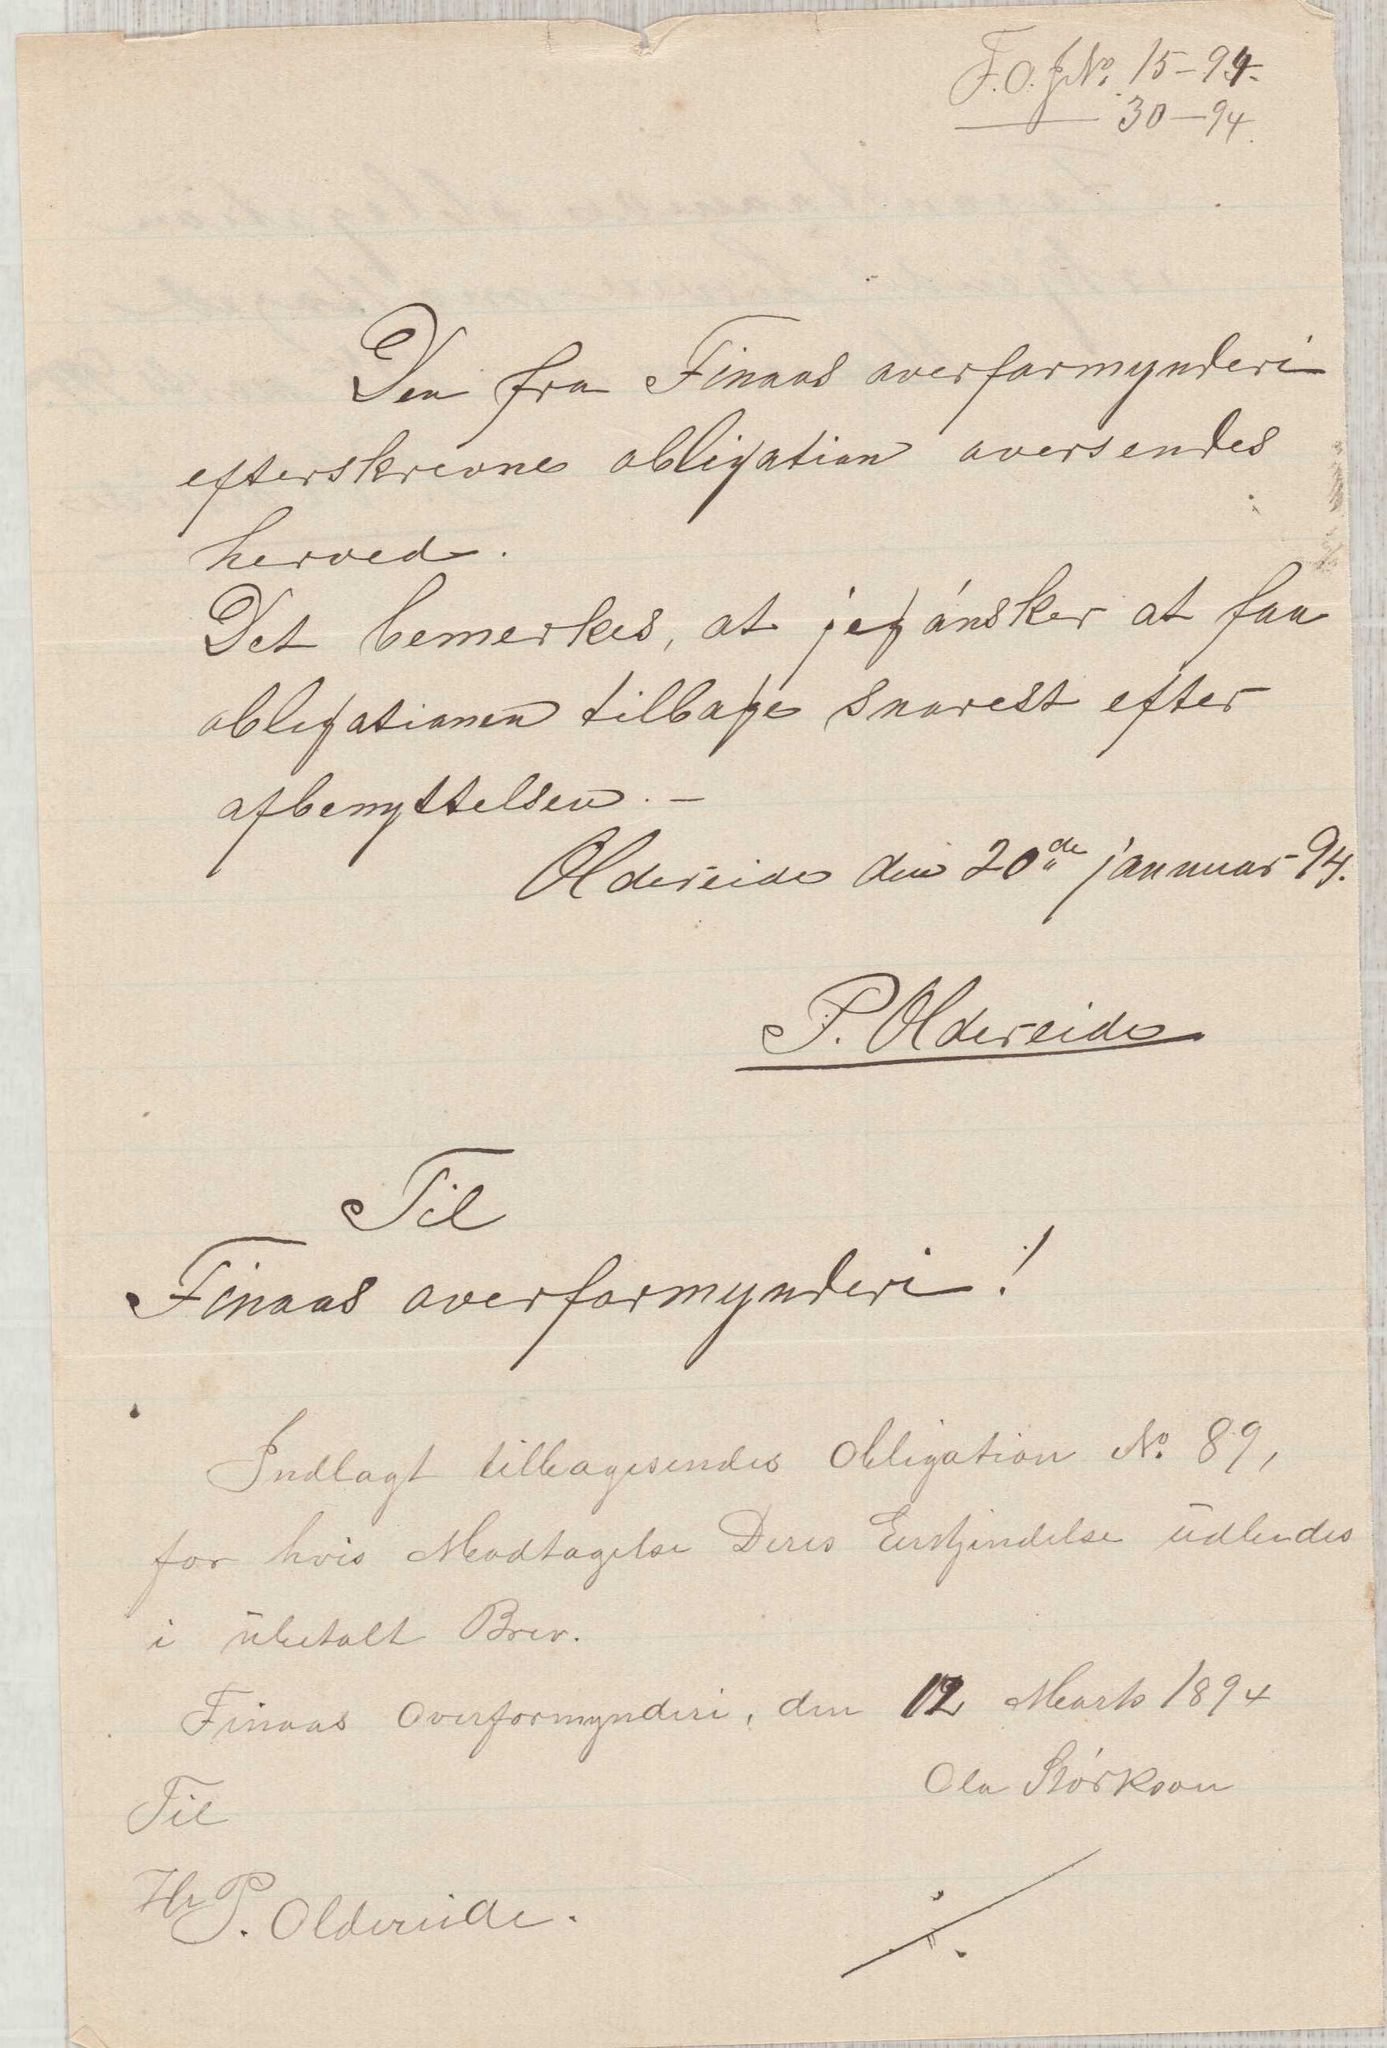 F.O.J.No. 15-94.
30-94.
Den fra Finaas overformynderi
efterskrevne obligation oversendes
herved.
Det bemerkes, at jeg ønsker at faa
obligationen tilbage snarest efter
afbenyttelsen. -
Oldereide den 20de januar 94.
P. Oldereide
Til
Finaas overformynderi!
Indlagt tilbagesendes Obligation No. 89,
for hvis Modtagelse Deres Erkjendelse udbedes
i ubetalt Brev.
Finaas Overformynderi, den 12 Marts 1894
Ola Størkson
Til
Hr P. Oldereide.